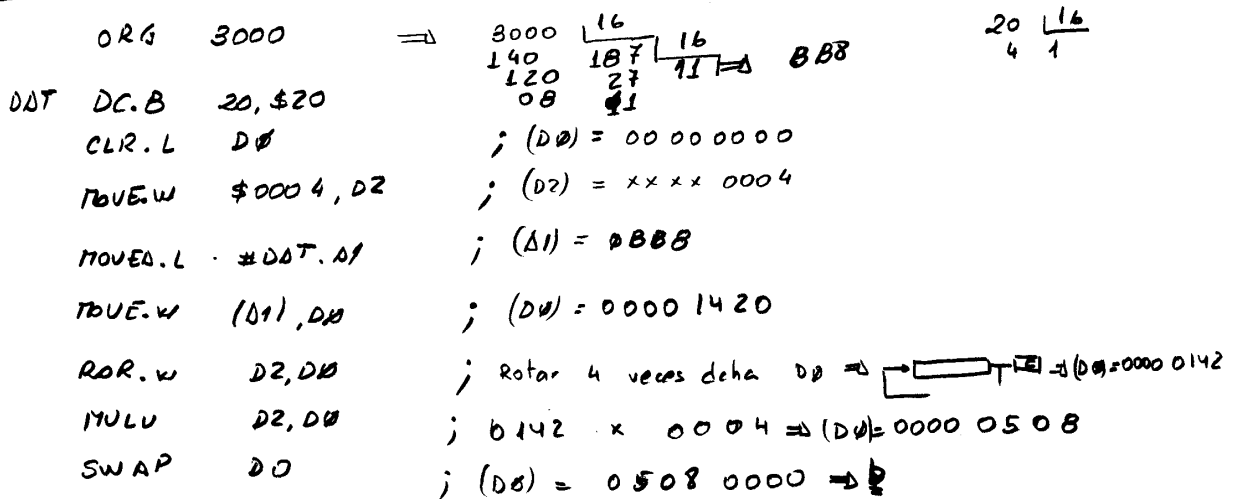 ORG 3000 ⇒ 3000 16 20 16
140 187 16 ⇒ BB8 4 1
120 27 11
DAT DC.B 20,$20 08 11
CLR.L DØ ; (DØ) = 00 00 0000
MOVE.W $0004, D2 ; (D2) = xxxx 0004
MOVEA.L #DAT.A1 ; (A1) = ØBB8
MOVE.W (A1), DØ ; (DØ) = 0000 1420
ROR.W D2, DØ ; Rotar 4 veces dcha DØ ⇒ ⇒ (DØ)=0000 0142
MULU D2, DØ ; 0142 x 0004 ⇒ (DØ)= 0000 0508
SWAP DO ; (DØ) = 0508 0000 ⇒